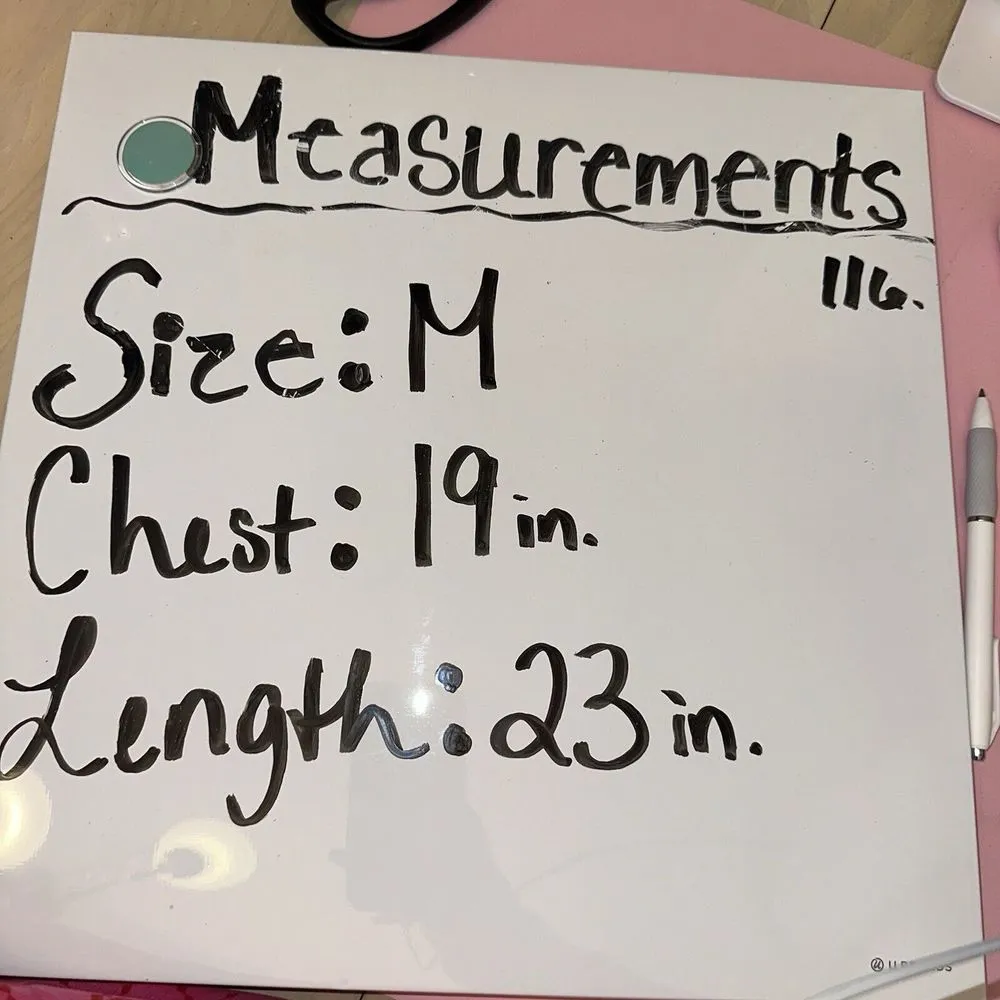 Measurements
116.
Size: M
Chest: 19 in.
Length: 23 in.